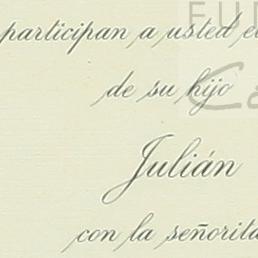 participan a usted e
de su hijo
Julián
con la señorita